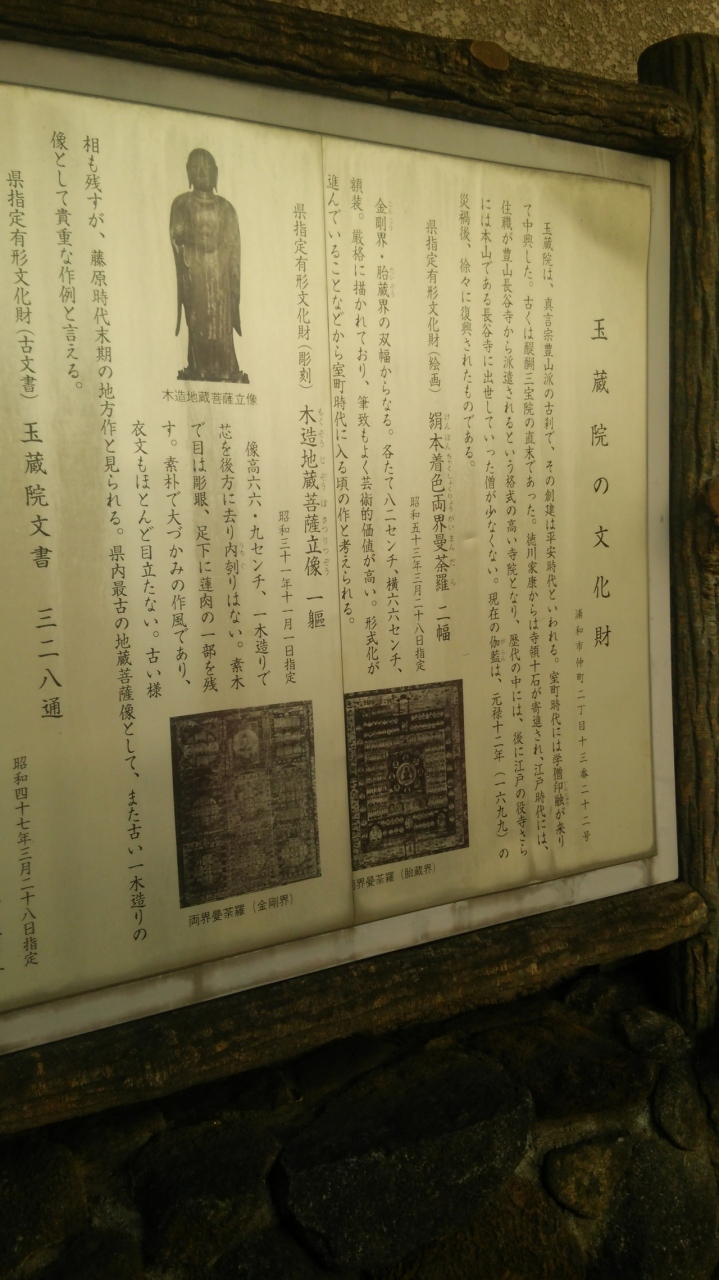 玉蔵院の文化財
浦和市仲町二丁目十三番二十二号
玉蔵院は、真言宗豊山派の古刹で、その創建は平安時代といわれる。室町時代には学僧印融が来り
て中興した。古くは醍醐三宝院の直末であった。徳川家康からは寺領十石が寄進され、江戸時代には、
住職が豊山長谷寺から派遣されるという格式の高い寺院となり、歴代の中には、後に江戸の役寺さら
には本山である長谷寺に出世していった僧が少なくない。現在の伽藍は、元禄十二年(一六九九)の
災禍後、徐々に復興されたものである。
県指定有形文化財(絵画) 絹本着色両界曼荼羅 二幅
昭和五十三年三月二十八日指定
金剛界・胎蔵界の双幅からなる。各たて八二センチ、横六六センチ、
額装。厳格に描かれており、筆致もよく芸術的価値が高い。形式化が
進んでいることなどから室町時代に入る頃の作と考えられる。
両界曼荼羅(胎蔵界)
県指定有形文化財(彫刻) 木造地蔵菩薩立像 一軀
昭和三十一年十一月一日指定
像高六六・九センチ、一木造りで
芯を後方に去り内刳りはない。素木
で目は彫眼、足下に蓮肉の一部を残
す。素朴で大づかみの作風であり、
衣文もほとんど目立たない。古い様
相も残すが、藤原時代末期の地方作と見られる。県内最古の地蔵菩薩像として、また古い一木造りの
像として貴重な作例と言える。
木造地蔵菩薩立像
両界曼荼羅(金剛界)
県指定有形文化財(古文書) 玉蔵院文書 三二八通
昭和四十七年三月二十八日指定